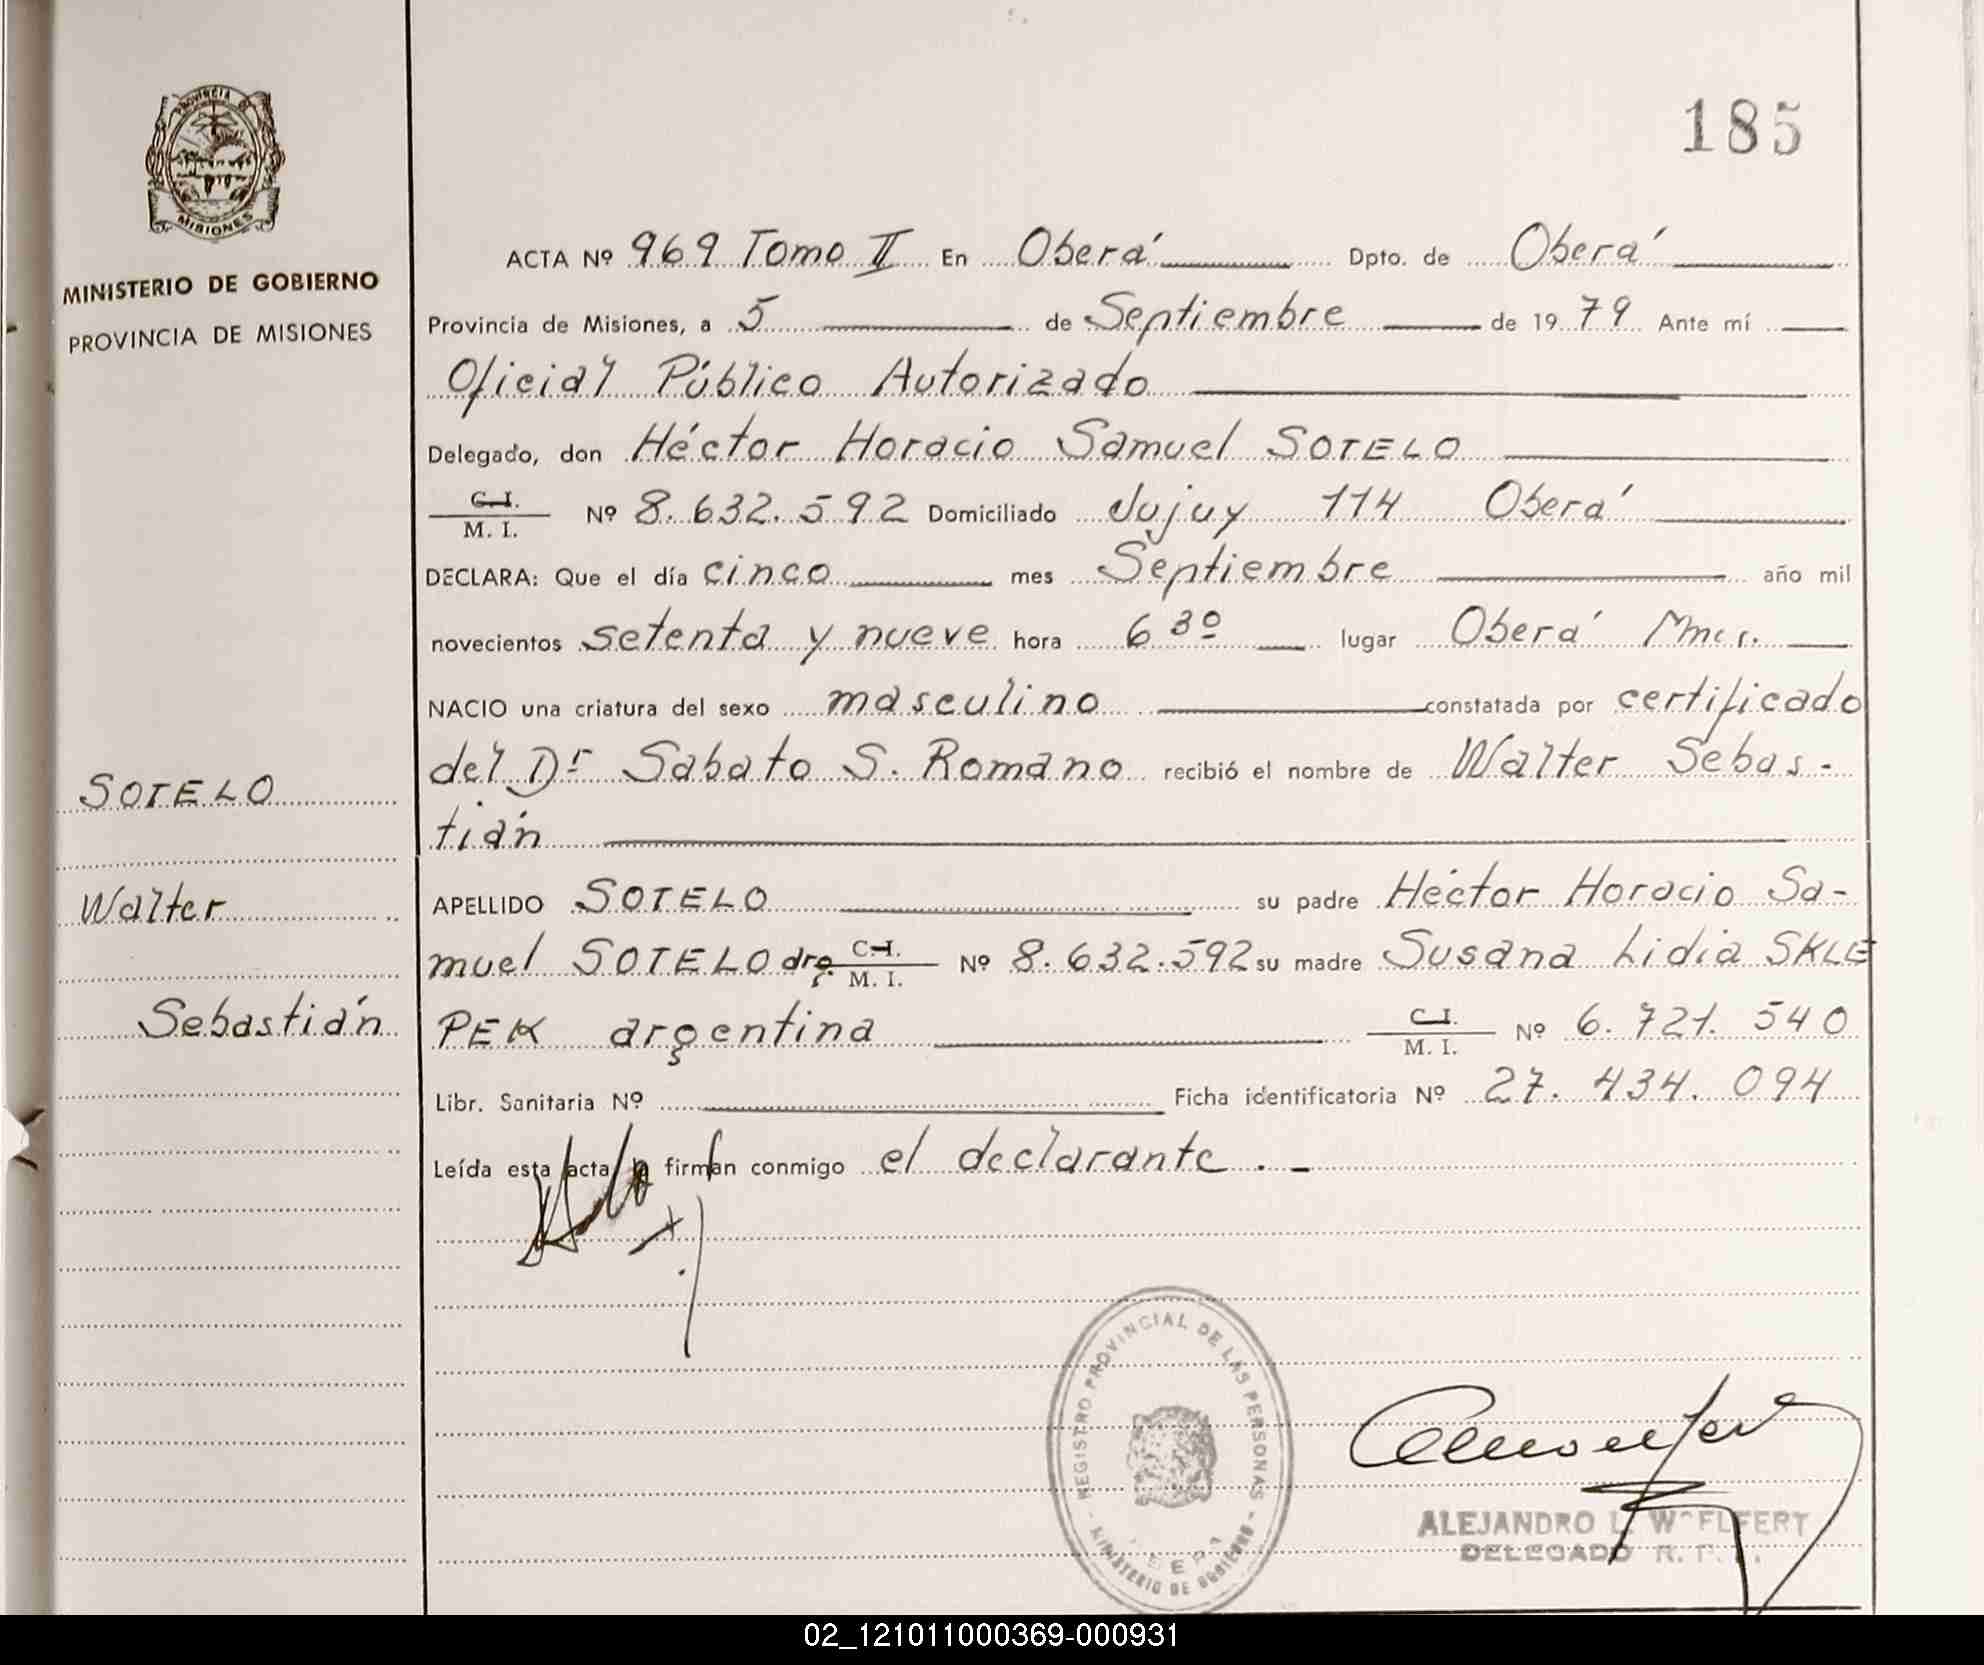 185
PROVINCIA DE
MISIONES
MINISTERIO DE GOBIERNO
PROVINCIA DE MISIONES
SOTELO
Walter
Sebastián
ACTA Nº 969 Tomo II En Oberá Dpto. de Oberá
Provincia de Misiones, a 5 de Septiembre de 1979 Ante mí
Oficial Público Autorizado
Delegado, don Héctor Horacio Samuel SOTELO
C. I.
M. I. Nº 8.632.592 Domiciliado Jujuy 114 Oberá
DECLARA: Que el día cinco mes Septiembre año mil
novecientos setenta y nueve hora 6 30 lugar Oberá Mnes.
NACIO una criatura del sexo masculino constatada por certificado
del Dr Sabato S. Romano recibió el nombre de Walter Sebas-
tián
APELLIDO SOTELO su padre Héctor Horacio Sa-
muel SOTELO arg. C. I. M. I. Nº 8.632.592 su madre Susana Lidia SKLE
PEK argentina C. I. M. I. Nº 6.721.540
Libr. Sanitaria Nº Ficha identificatoria Nº 27.434.094
Leída esta acta la firman conmigo el declarante.-
REGISTRO PROVINCIAL DE LAS PERSONAS
MINISTERIO DE GOBIERNO
ALEJANDRO L. WOELFERT
DELEGADO R. P. P.
02_121011000369-000931